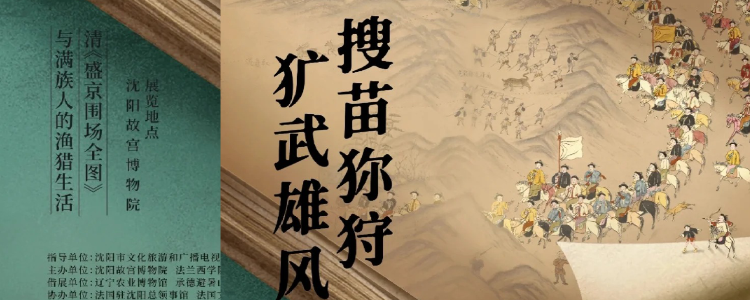 搜苗狝狩
犷武雄风
展览地点
沈阳故宫博物院
清《盛京围场全图》
与满族人的渔猎生活
指导单位:沈阳市文化旅游和广播电视
主办单位:沈阳故宫博物院 法兰西学
借展单位:辽宁农业博物馆 承德避暑
协办单位:法国驻沈阳总领事馆 法国